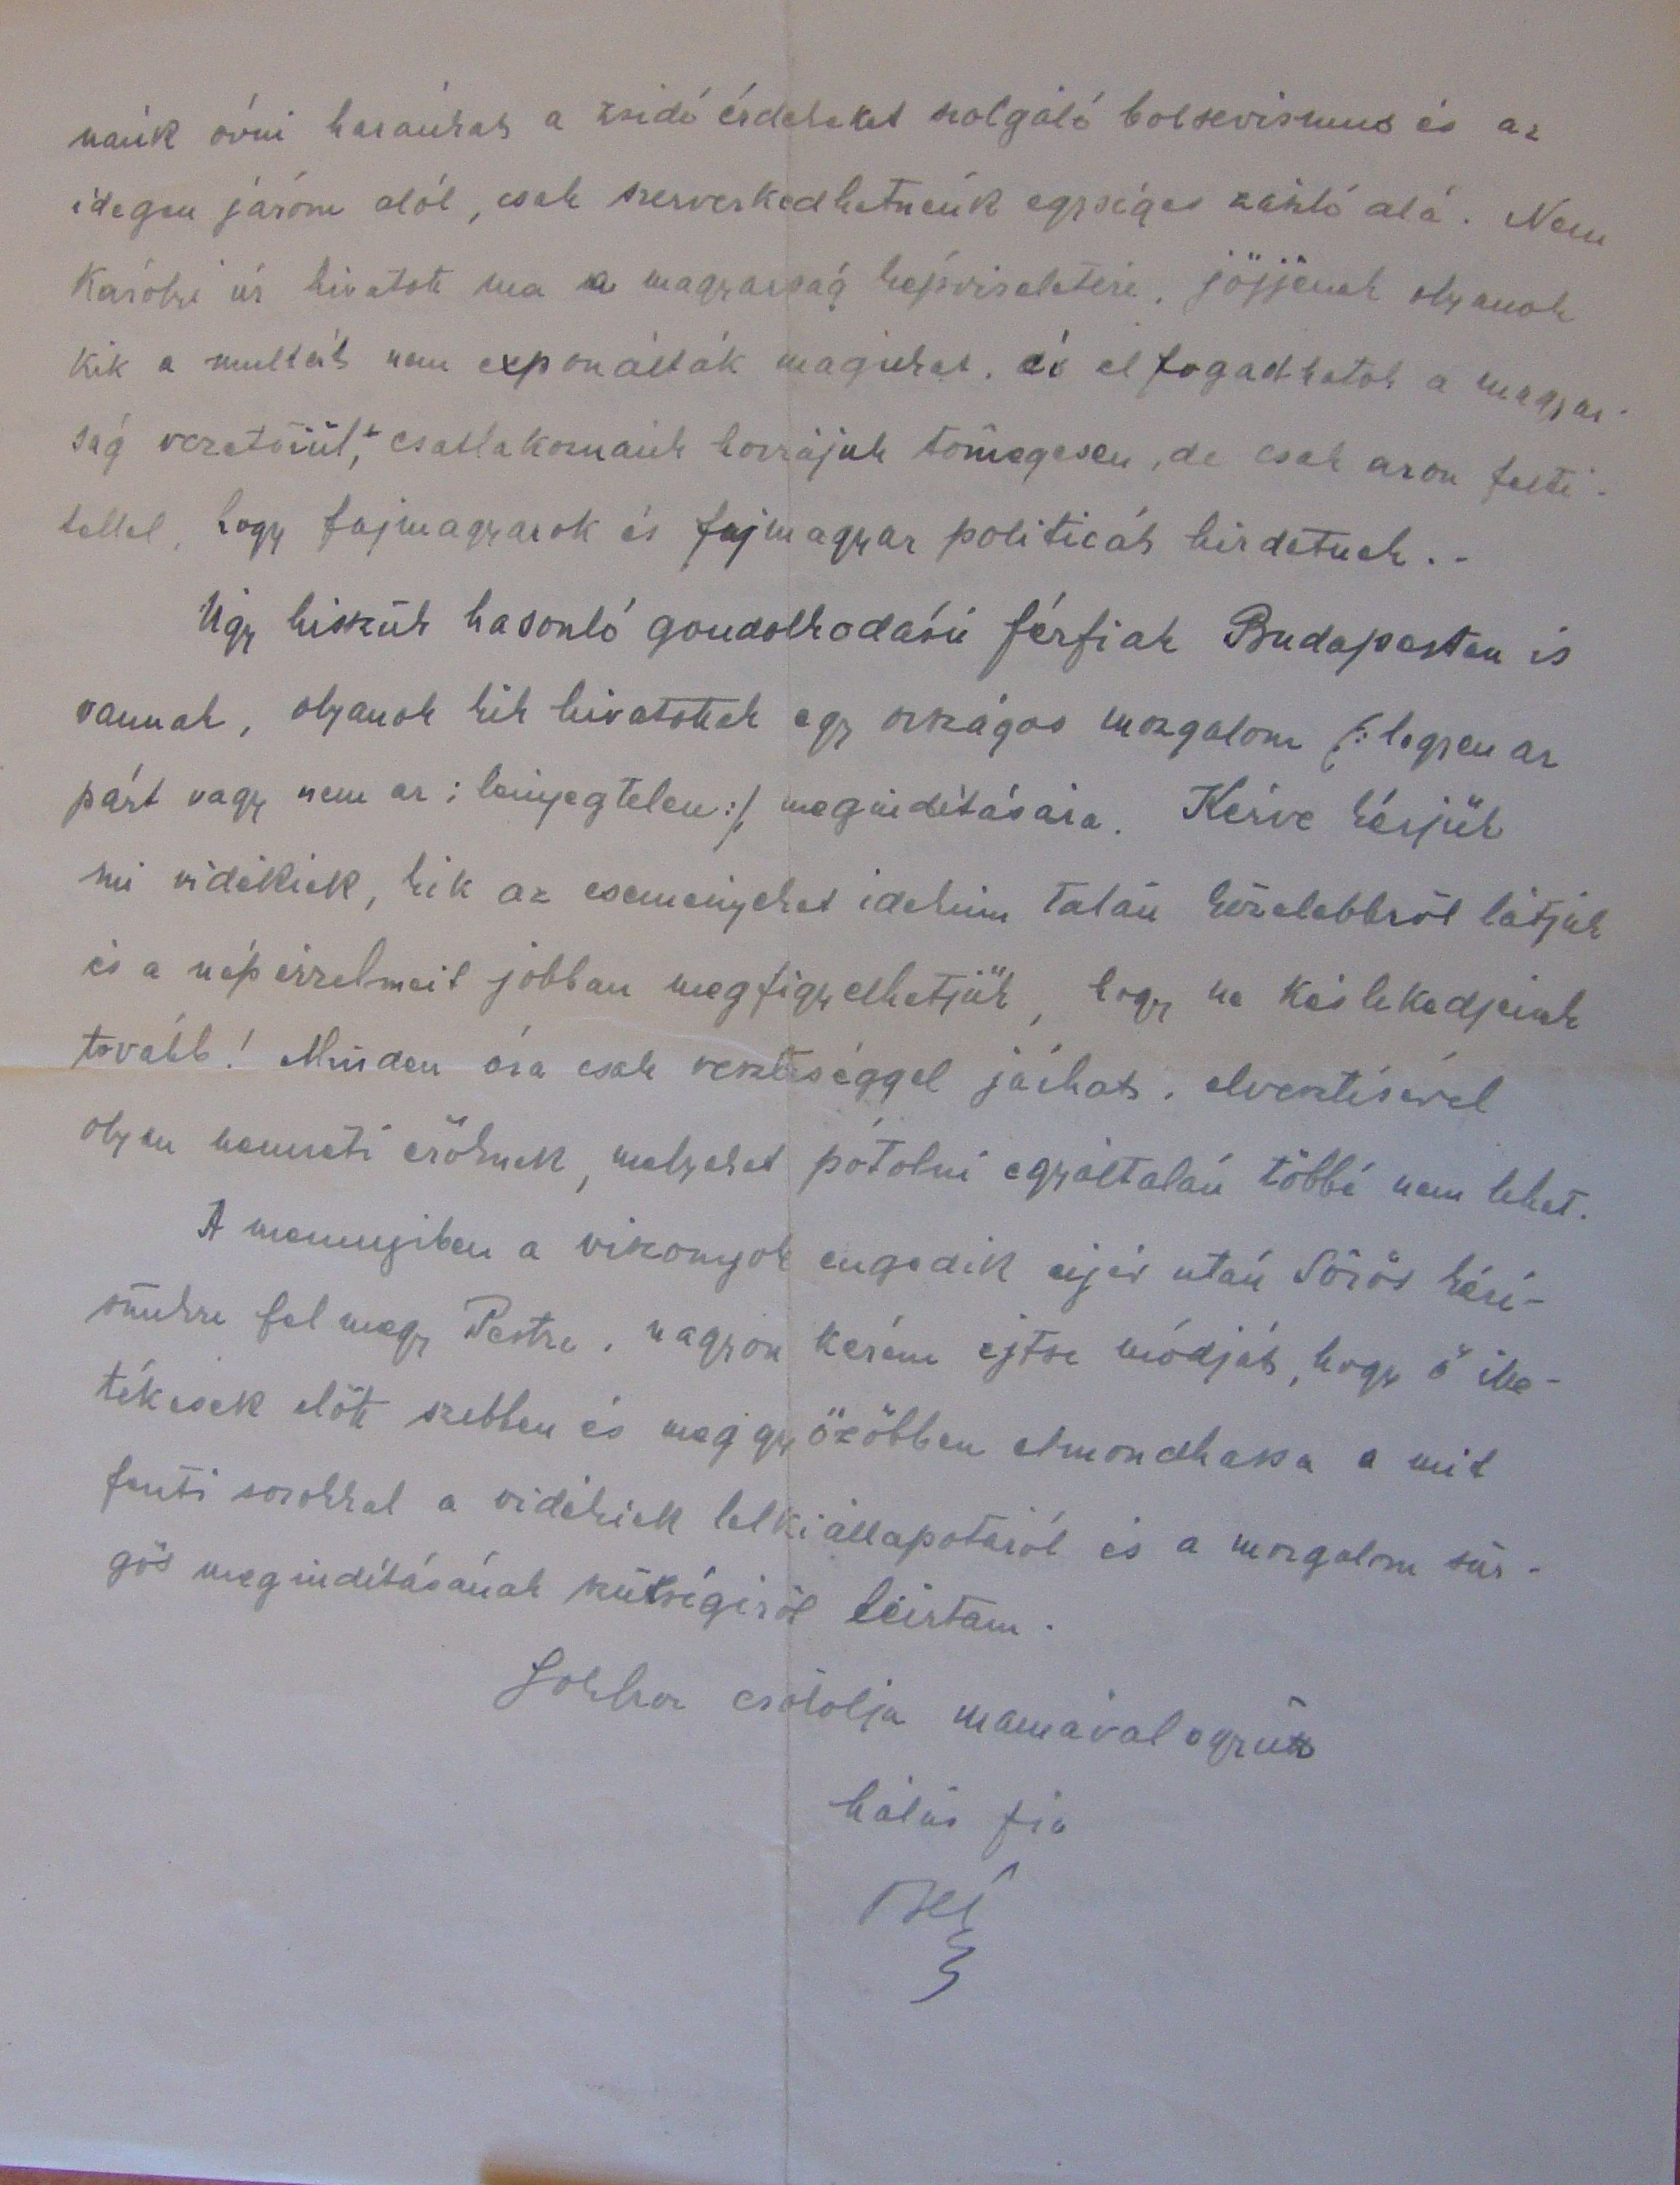 nánk óvni hazánkat a zsidó érdekeket szolgáló bolsevismus és az
idegen járom alól, csak szervezkedhetnénk egységes zászló alá. Nem
Károlyi úr hivatott ma a magyarság képviseletére, jöjjenek olyanok
kik a multat nem exponálták magukat, és elfogadhatok a magyar-
ság vezetőiül, csatlakoznánk hozzájuk tömegesen, de csak azon felté-
tellel, hogy fajmagyarok és fajmagyar politicát hirdetnek. -
Úgy hiszük hasonló gondolkodású férfiak Budapesten is
vannak, olyanok kik hivatottak egy országos mozgalom /: legyen az
párt vagy nem az ; lényegtelen :/ megindítására. Kérve kérjük
mi vidékiek, kik az eseményeket idekinn talán közelebbről látjuk
és a nép érzelmeit jobban megfigyelhetjük, hogy ne késlekedjenek
tovább! Minden óra csak veszteséggel járhat, elvesztésével
olyan nemzeti erőknek, melyeket pótolni egyáltalán többé nem lehet.
A mennyiben a viszonyok engedik újév után Sörös kéré-
sünkre felmegy Pestre, nagyon kérem ejtse módját, hogy ő ille-
tékesek előtt szebben és meggyőzőbben elmondhassa a mit
fenti sorokkal a vidékiek lelkiállapotáról és a mozgalom sür-
gős megindításának szükségéről leírtam.
Sokszor csókolja mamával együtt
hálás fia